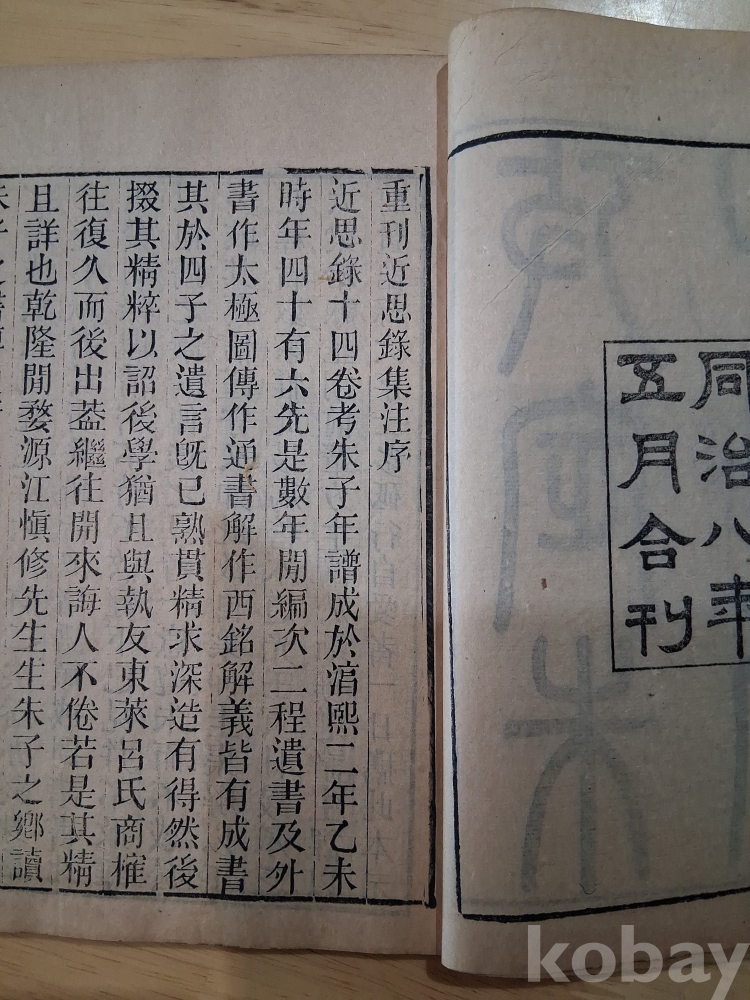 同治八年
五月合刊
重刊近思錄集注序
近思錄十四卷考朱子年譜成於湻熙二年乙未
時年四十有六先是數年閒編次二程遺書及外
書作太極圖傳作通書解作西銘解義皆有成書
其於四子之遺言旣已熟貫精求深造有得然後
掇其精粹以詔後學猶且與執友東萊呂氏商榷
往復久而後出葢繼往開來誨人不倦若是其精
且詳也乾隆閒婺源江愼修先生生朱子之鄉讀
朱子之書
kobay